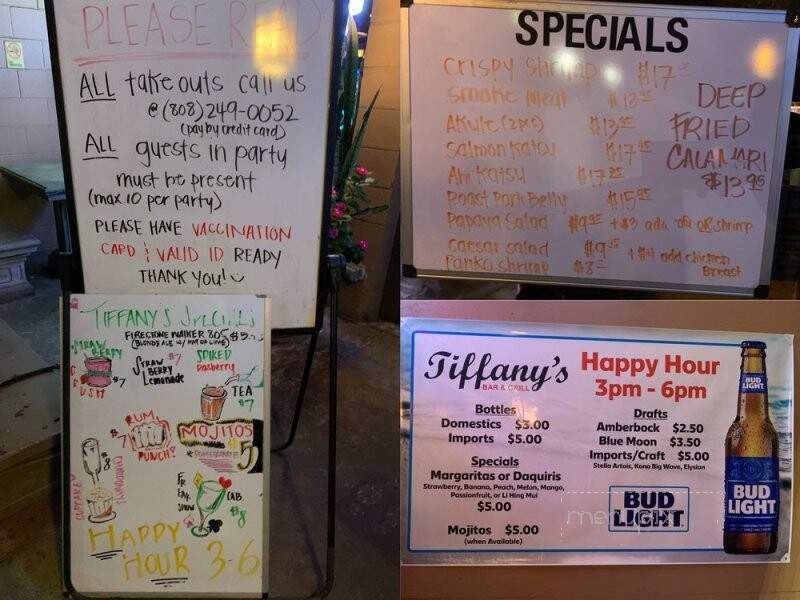 PLEASE READ
ALL take outs call us
@ (808) 249-0052
(pay by credit card)
ALL guests in party
must be present
(max 10 per party)
PLEASE HAVE VACCINATION
CARD & VALID ID READY
THANK YOU!
TIFFANY'S SPECIALS
FIRESTONE WALKER 805
(BLONDE ALE W/ MINT OR LIME)
STRAWBERRY
$7
STRAW $7
BERRY
Lemonade
SPIKED
Raspberry
TEA
$7
RUM
$7
PUNCH!
MOJITOS
$5
CHAMPAGNE
$8
CUPCAKE
FREAK
SHOW
CAB
$8
HAPPY
HOUR 3-6
SPECIALS
Crispy Shrimp $17
Smoke Meat
Akule (2pcs)
Salmon Katsu
Ahi Katsu
Roast Pork Belly $15.95
Papaya Salad + $3 add ahi OR shrimp
Caesar Salad + $4 add chicken
Breast
Panko shrimp
DEEP
FRIED
CALAMARI
$13.95
Tiffany's
BAR & GRILL
Happy Hour
3pm - 6pm
Bottles
Domestics $3.00
Imports $5.00
Specials
Margaritas or Daquiris
Strawberry, Banana, Peach, Melon, Mango,
Passionfruit, or Li Hing Mui
$5.00
Mojitos $5.00
(when Available)
Drafts
Amberbock $2.50
Blue Moon $3.50
Imports/Craft $5.00
Stella Artois, Kona Big Wave, Elysian
BUD
LIGHT
BUD
LIGHT
BUD
LIGHT